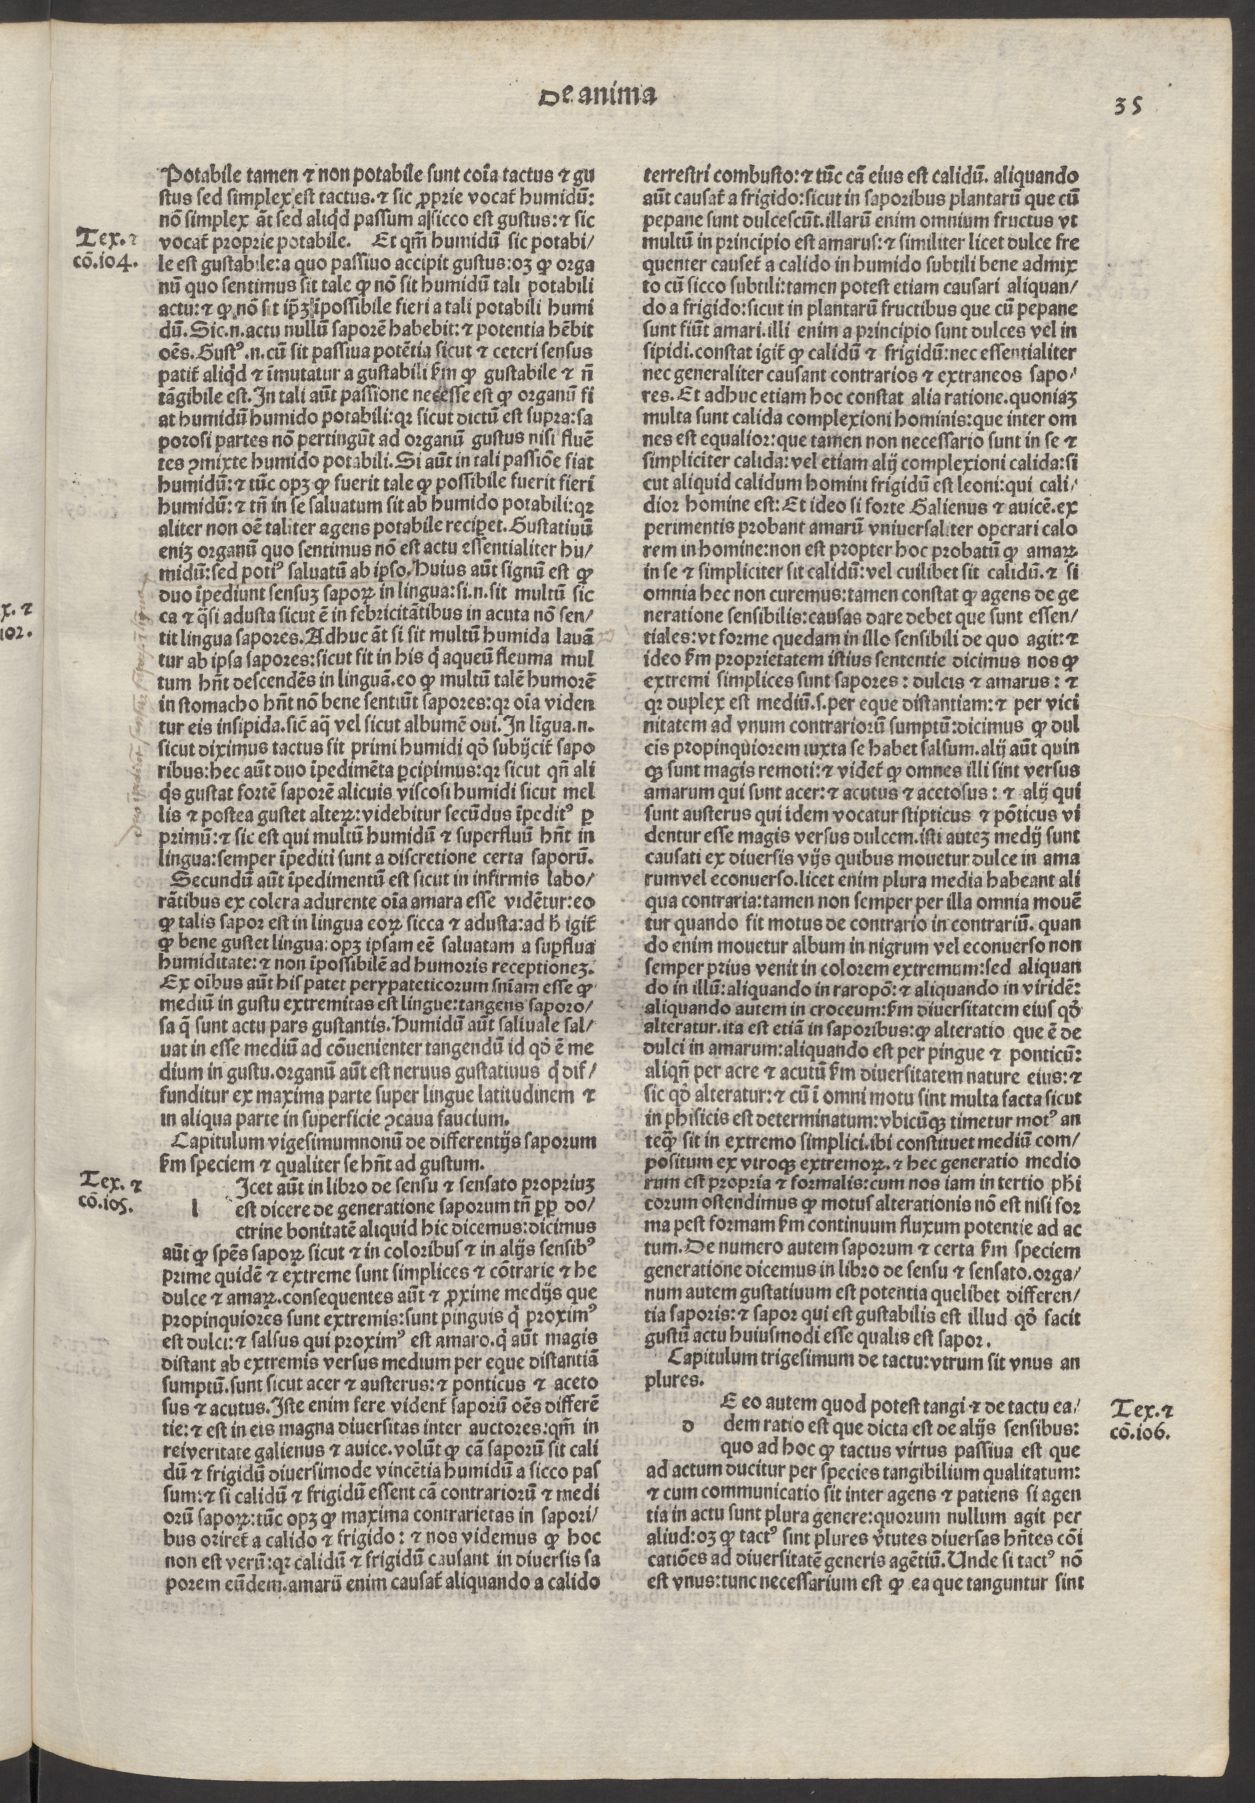 De anima
35
Potabile tamen ⁊ non potabile sunt coĩa tactus ⁊ gu
stus sed simplex est tactus. ⁊ sic ꝓprie vocat̃ humidũ:
nõ simplex ãt sed aliqd passum a sicco est gustus: ⁊ sic
Tex. ⁊
cõ. 104.
vocat̃ proprie potabile. Et qm̃ humidũ sic potabi/
le est gustabile: a quo passiuo accipit gustus: oꝫ ꝙ orga
nũ quo sentimus sit tale ꝙ nõ sit humidũ tali potabili
actu: ⁊ ꝙ nõ sit ip̃ꝫ ĩpossibile fieri a tali potabili humi
dũ. Sic.n. actu nullũ saporẽ habebit: ⁊ potentia hẽbit
oẽs. Gustꝰ.n. cũ sit passiua potẽtia sicut ⁊ ceteri sensus
patit̃ aliq̃d ⁊ ĩmutatur a gustabili ẜm ꝙ gustabile ⁊ nñ
tãgibile est. In tali aũt passione necesse est ꝙ organũ fi
at humidũ humido potabili: qꝛ sicut dictũ est supra: sa
porosi partes nõ pertingũt ad organũ gustus nisi fluẽ
tes ꝯmixte humido potabili. Si aũt in tali passiõe fiat
humidũ: ⁊ tũc opꝫ ꝙ fuerit tale ꝙ possibile fuerit fieri
humidũ: ⁊ tñ in se saluatum sit ab humido potabili: qꝛ
aliter non oẽ taliter agens potabile recipet. Gustatiuũ
eniꝫ organũ quo sentimus nõ est actu essentialiter hu/
midũ: sed potiꝰ saluatũ ab ipso. Huius aũt signũ est ꝙ
duo ĩpediunt sensuꝫ sapoꝝ in lingua: si.n. sit multũ sic
ca ⁊ q̃si adusta sicut ẽ in febricitãtibus in acuta nõ sen/
tit lingua sapores. Adhuc ãt si sit multũ humida lauã
tur ab ipsa sapores: sicut fit in his q̃ aqueũ fleuma mul
tum hñt descendẽs in linguã. eo ꝙ multũ talẽ humorẽ
in stomacho hñt nõ bene sentiũt sapores: qꝛ oĩa viden
tur eis insipida. sicẽ aq̃ vel sicut albumẽ oui. In lĩgua.n.
sicut diximus tactus sit primi humidi qđ subijcit̃ sapo
ribus: hec aũt duo ĩpedimẽta ꝑcipimus: qꝛ sicut qñ ali
q̃s gustat fortẽ saporẽ alicuis viscosi humidi sicut mel
lis ⁊ postea gustet alteꝝ: videbitur secũdus ĩpeditꝰ ꝑ
primũ: ⁊ sic est qui multũ humidũ ⁊ superfluũ hñt in
lingua: semper ĩpediti sunt a discretione certa saporũ.
Secundũ aũt ĩpedimentũ est sicut in infirmis labo/
rãtibus ex colera adurente oĩa amara esse vidẽtur: eo
ꝙ talis sapor est in lingua eoꝝ sicca ⁊ adusta: ad h̃ igit̃
ꝙ bene gustet lingua: opꝫ ipsam eẽ saluatam a supflua
humiditate: ⁊ non ĩpossibilẽ ad humoris receptioneꝫ.
Ex oĩbus aũt his patet perypateticorum sniam esse ꝙ
mediũ in gustu extremitas est lingue: tangens saporo/
sa q̃ sunt actu pars gustantis. Humidũ aũt saliuale sal/
uat in esse mediũ ad cõuenienter tangendũ id qđ ẽ me
dium in gustu. organũ aũt est neruus gustatiuus q̃ dif/
funditur ex maxima parte super lingue latitudinem ⁊
in aliqua parte in superficie ꝯcaua faucium.
Capitulum vigesimumnonũ de differentijs saporum
ẜm speciem ⁊ qualiter se hñt ad gustum.
Tex. ⁊
cõ. 105.
l
Icet aũt in libro de sensu ⁊ sensato propriuꝫ
est dicere de generatione saporum tñ ꝓp̃ do/
ctrine bonitatẽ aliquid hic dicemus: dicimus
aũt ꝙ spẽs sapoꝝ sicut ⁊ in coloribus ⁊ in alijs sensibꝰ
prime quidẽ ⁊ extreme sunt simplices ⁊ cõtrarie ⁊ he
dulce ⁊ amaꝝ. consequentes aũt ⁊ ꝓxime medijs que
propinquiores sunt extremis: sunt pinguis q̃ proximꝰ
est dulci: ⁊ salsus qui proximꝰ est amaro. q̃ aũt magis
distant ab extremis versus medium per eque distantiã
sumptũ. sunt sicut acer ⁊ austerus: ⁊ ponticus ⁊ aceto
sus ⁊ acutus. Iste enim fere vident̃ saporũ oẽs differẽ
tie: ⁊ est in eis magna diuersitas inter auctores: qm̃ in
rei veritate galienus ⁊ auice. volũt ꝙ cã saporũ sit cali
dũ ⁊ frigidũ diuersimode vincẽtia humidũ a sicco pas
sum: ⁊ si calidũ ⁊ frigidũ essent cã contrariorũ ⁊ medi
orũ sapoꝝ: tũc opꝫ ꝙ maxima contrarietas in sapori/
bus oriret̃ a calido ⁊ frigido: ⁊ nos videmus ꝙ hoc
non est verũ: qꝛ calidũ ⁊ frigidũ causant in diuersis sa
porem eũdem. amarũ enim causat̃ aliquando a calido
terrestri combusto: ⁊ tũc cã eius est calidũ. aliquando
aũt causat̃ a frigido: sicut in saporibus plantarũ que cũ
pepane sunt dulcescũt. illarũ enim omnium fructus vt
multũ in principio est amarus: ⁊ similiter licet dulce fre
quenter causet̃ a calido in humido subtili bene admix
to cũ sicco subtili: tamen potest etiam causari aliquan/
do a frigido: sicut in plantarũ fructibus que cũ pepane
sunt fiũt amari. illi enim a principio sunt dulces vel in
sipidi. constat igit̃ ꝙ calidũ ⁊ frigidũ: nec essentialiter
nec generaliter causant contrarios ⁊ extraneos sapo/
res. Et adhuc etiam hoc constat alia ratione. quoniaꝫ
multa sunt calida complexioni hominis: que inter om
nes est equalior: que tamen non necessario sunt in se ⁊
simpliciter calida: vel etiam alij complexioni calida: si
cut aliquid calidum homini frigidũ est leoni: qui cali/
dior homine est: Et ideo si forte Galienus ⁊ auicẽ. ex
perimentis probant amarũ vniuersaliter operari calo
rem in homine: non est propter hoc probatũ ꝙ amaꝝ
in se ⁊ simpliciter sit calidũ: vel cuilibet sit calidũ. ⁊ si
omnia hec non curemus: tamen constat ꝙ agens de ge
neratione sensibilis: causas dare debet que sunt essen/
tiales: vt forme quedam in illo sensibili de quo agit: ⁊
ideo ẜm proprietatem istius sententie dicimus nos ꝙ
extremi simplices sunt sapores: dulcis ⁊ amarus: ⁊
qꝛ duplex est mediũ.s. per eque distantiam: ⁊ per vici
nitatem ad vnum contrariorũ sumptũ: dicimus ꝙ dul
cis propinquiorem iuxta se habet salsum. alij aũt quin
qꝫ sunt magis remoti: ⁊ videt̃ ꝙ omnes illi sint versus
amarum qui sunt acer: ⁊ acutus ⁊ acetosus: ⁊ alij qui
sunt austerus qui idem vocatur stipticus ⁊ põticus vi
dentur esse magis versus dulcem. isti auteꝫ medij sunt
causati ex diuersis vijs quibus mouetur dulce in ama
rum vel econuerso. licet enim plura media habeant ali
qua contraria: tamen non semper per illa omnia mouẽ
tur quando fit motus de contrario in contrariũ. quan
do enim mouetur album in nigrum vel econuerso non
semper prius venit in colorem extremum: sed aliquan
do in illũ: aliquando in raropõ: ⁊ aliquando in viridẽ:
aliquando autem in croceum: ẜm diuersitatem eius qđ
alteratur. ita est etiã in saporibus: ꝙ alteratio que ẽ de
dulci in amarum: aliquando est per pingue ⁊ ponticũ:
aliqñ per acre ⁊ acutũ ẜm diuersitatem nature eius: ⁊
sic qđ alteratur: ⁊ cũ ĩ omni motu sint multa facta sicut
in phisicis est determinatum: vbicũqꝫ timetur motꝰ an
teq̃ sit in extremo simplici. ibi constituet mediũ com/
positum ex vtroqꝫ extremoꝝ. ⁊ hec generatio medio
rum est propria ⁊ formalis: cum nos iam in tertio phi
corum ostendimus ꝙ motus alterationis nõ est nisi for
ma pest formam ẜm continuum fluxum potentie ad ac
tum. De numero autem saporum ⁊ certa ẜm speciem
generatione dicemus in libro de sensu ⁊ sensato. orga/
num autem gustatiuum est potentia quelibet differen/
tia saporis: ⁊ sapor qui est gustabilis est illud qđ facit
gustũ actu huiusmodi esse qualis est sapor.
Capitulum trigesimum de tactu: vtrum sit vnus an
plures.
Tex. ⁊
cõ. 106.
d
E eo autem quod potest tangi ⁊ de tactu ea/
dem ratio est que dicta est de alijs sensibus:
quo ad hoc ꝙ tactus virtus passiua est que
ad actum ducitur per species tangibilium qualitatum:
⁊ cum communicatio sit inter agens ⁊ patiens si agen
tia in actu sunt plura genere: quorum nullum agit per
aliud: oꝫ ꝙ tactꝰ sint plures v̓tutes diuersas hñtes cõi
catiões ad diuersitatẽ generis agẽtiũ. Unde si tactꝰ nõ
est vnus: tunc necessarium est ꝙ ea que tanguntur sint
x. ⁊
102.